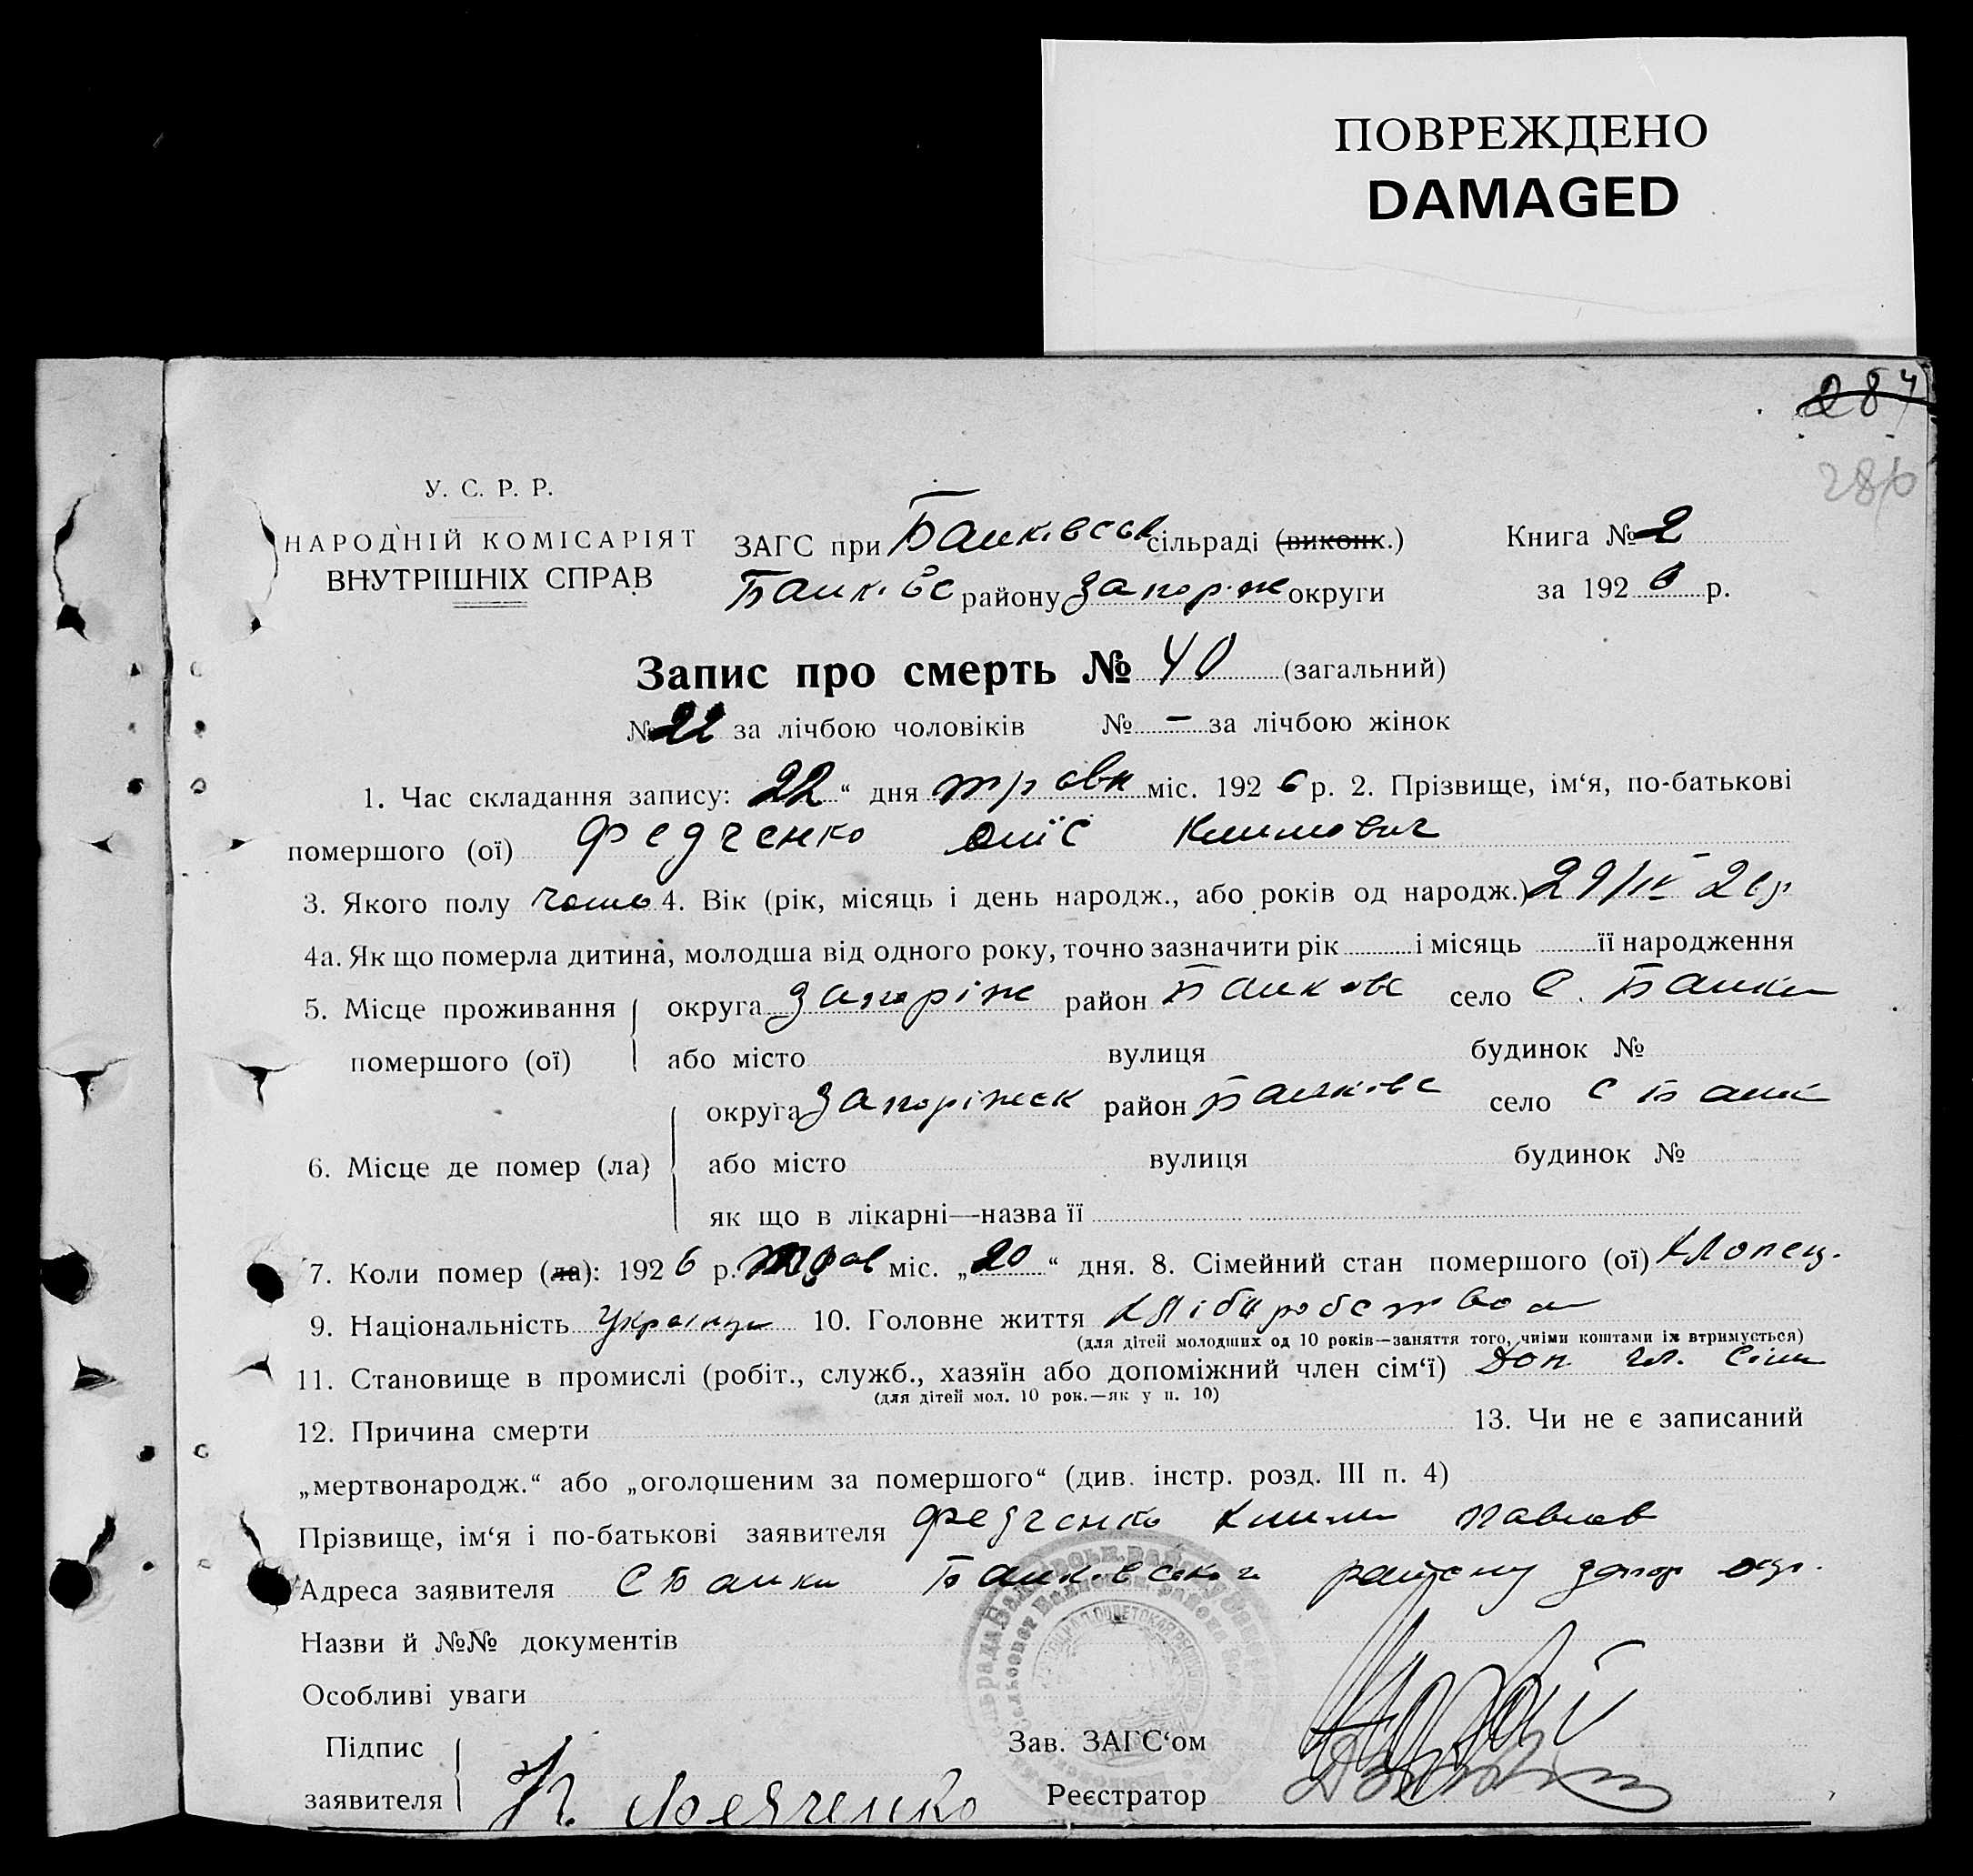 ПОВРЕЖДЕНО
DAMAGED
284
286
У. С. Р. Р.
НАРОДНІЙ КОМІСАРІЯТ
ВНУТРІШНІХ СПРАВ
ЗАГС при Балківськ сільраді (виконк.) Книга № 2
Балківс району Запоріж округи за 1926 р.
Запис про смерть № 40 (загальний)
№ 22 за лічбою чоловіків № – за лічбою жінок
1. Час складання запису: 22 “ дня травн міс. 1926 р. 2. Прізвище, ім‘я, по-батькові
помершого (ої) Федченко Климович
3. Якого полу 4. Вік (рік, місяць і день народж., або років од народж.) 29/IV 26 р
4а. Як що померла дитина, молодша від одного року, точно зазначити рік і місяць її народження
5. Місце проживання округа Запоріж район Балковс село С. Балки
помершого (ої) або місто вулиця будинок №
округа Запоріжск район Балківс село С Балк
6. Місце де помер (ла) або місто вулиця будинок №
як що в лікарні—назва її
7. Коли помер (ла): 1926 р. трав міс. „20“ дня. 8. Сімейний стан помершого (ої) Хлопец.
9. Національність Українц 10. Головне життя Хліборобство
(для дітей молодших од 10 років—заняття того, чиїми коштами їх втримується)
11. Становище в промислі (робіт., служб., хазяїн або допоміжний член сім‘ї) Доп. чл. сім
(для дітей мол. 10 рок.—як у п. 10)
12. Причина смерти 13. Чи не є записаний
„мертвонародж.“ або „оголошеним за помершого“ (див. інстр. розд. III п. 4)
Прізвище, ім‘я і по-батькові заявителя Федченко Клим Павлов
Адреса заявителя С Балки Балківского району Запор окр.
Назви й №№ документів
Особливі уваги
Підпис Зав. ЗАГС‘ом
заявителя К. Федченко Реєстратор